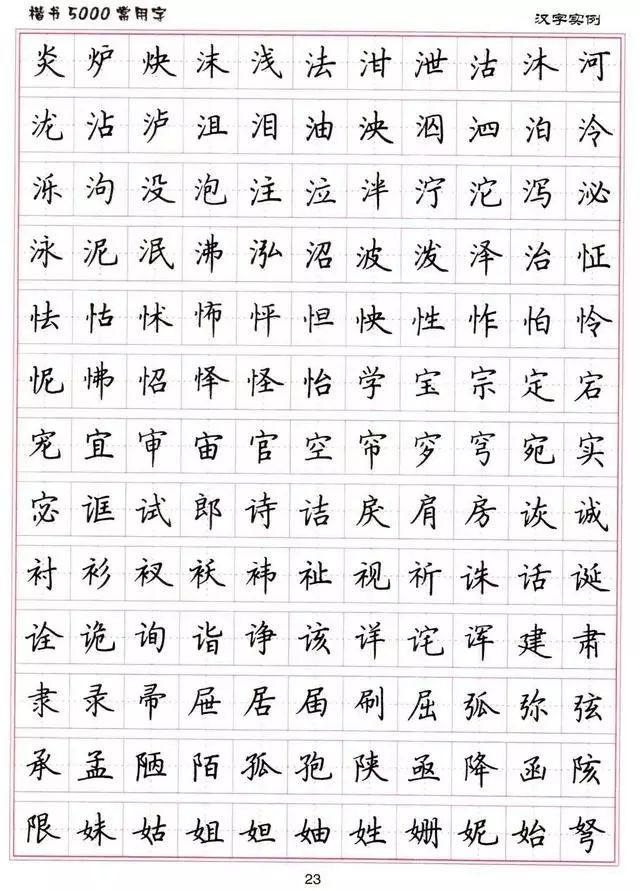 楷书5000常用字 汉字实例
炎炉炔沫浅法泔泄沽沐河
泷沾泸沮泪油泱泅泗泊泠
泺泃没泡注泣泮泞沱泻泌
泳泥泯沸泓沼波泼泽治怔
怯怙怵怖怦怛怏性怍怕怜
怩怫怊怿怪怡学宝宗定宕
宠宜审宙官空帘穸穹宛实
宓诓试郎诗诘戾肩房诙诚
衬衫衩袄祎祉视祈诛话诞
诠诡询诣诤该详诧诨建肃
隶录帚屉居届刷屈弧弥弦
承孟陋陌孤孢陕亟降函陔
限妹姑姐妲妯姓姗妮始弩
23